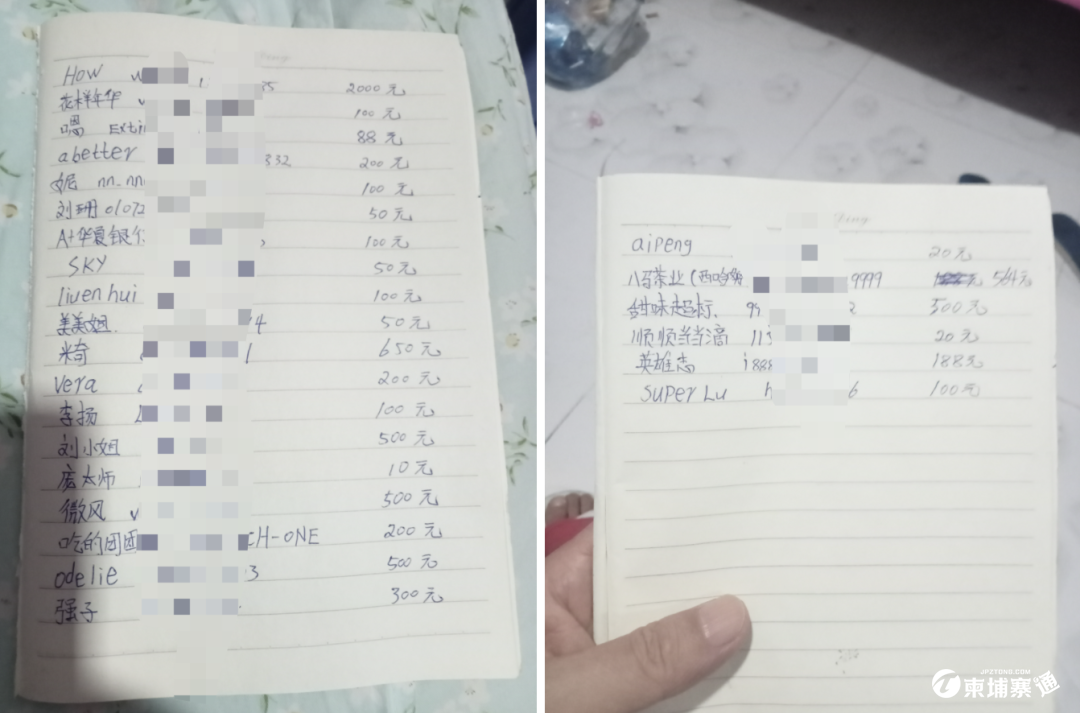 HOW 2000元
花样年华 100元
嗯 Exti 88元
abetter 332 200元
妮 nn-nn 100元
刘珊 01072 50元
A+华夏银 100元
SKY 50元
liuenhui 100元
美美姐 4 50元
米奇 1 650元
vera 200元
李扬 100元
刘小姐 500元
庞太师 10元
微风 500元
吃的团团 CH-ONE 200元
odelie 3 500元
强子 300元
aipeng 20元
八马茶业(西哈努 9999 564元
甜味超标. 99 2 500元
顺顺当当滴 113 20元
英雄志 i888 188元
SUPER LU h 6 100元
JPZTONG.COM
柬埔寨通